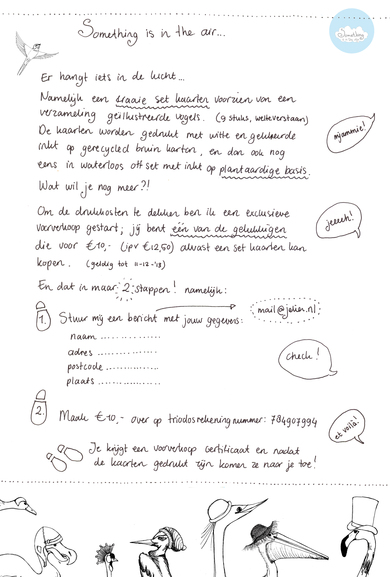 Something is in the air...
Er hangt iets in de lucht...
Namelijk een fraaie set kaarten voorzien van een
verzameling geïllustreerde vogels. (9 stuks, welteverstaan)
De kaarten worden gedrukt met witte en gekleurde
inkt op gerecycled bruin karton, en dan ook nog
eens in waterloos offset met inkt op plantaardige basis.
mjammie!
Wat wil je nog meer?!
Om de drukkosten te dekken ben ik een exclusieve
voorverkoop gestart; jij bent één van de gelukkigen
die voor €10,- (ipv €12,50) alvast een set kaarten kan
kopen. (geldig tot 11-12-'13)
jeeeh!
En dat in maar 2 stappen! namelijk:
1. Stuur mij een bericht met jouw gegevens:
mail@jelier.nl
naam ...............
adres ...............
postcode ...............
plaats ...............
check!
2. Maak €10,- over op triodosrekeningnummer: 784907994
et voilà!
Je krijgt een voorverkoop certificaat en nadat
de kaarten gedrukt zijn komen ze naar je toe!